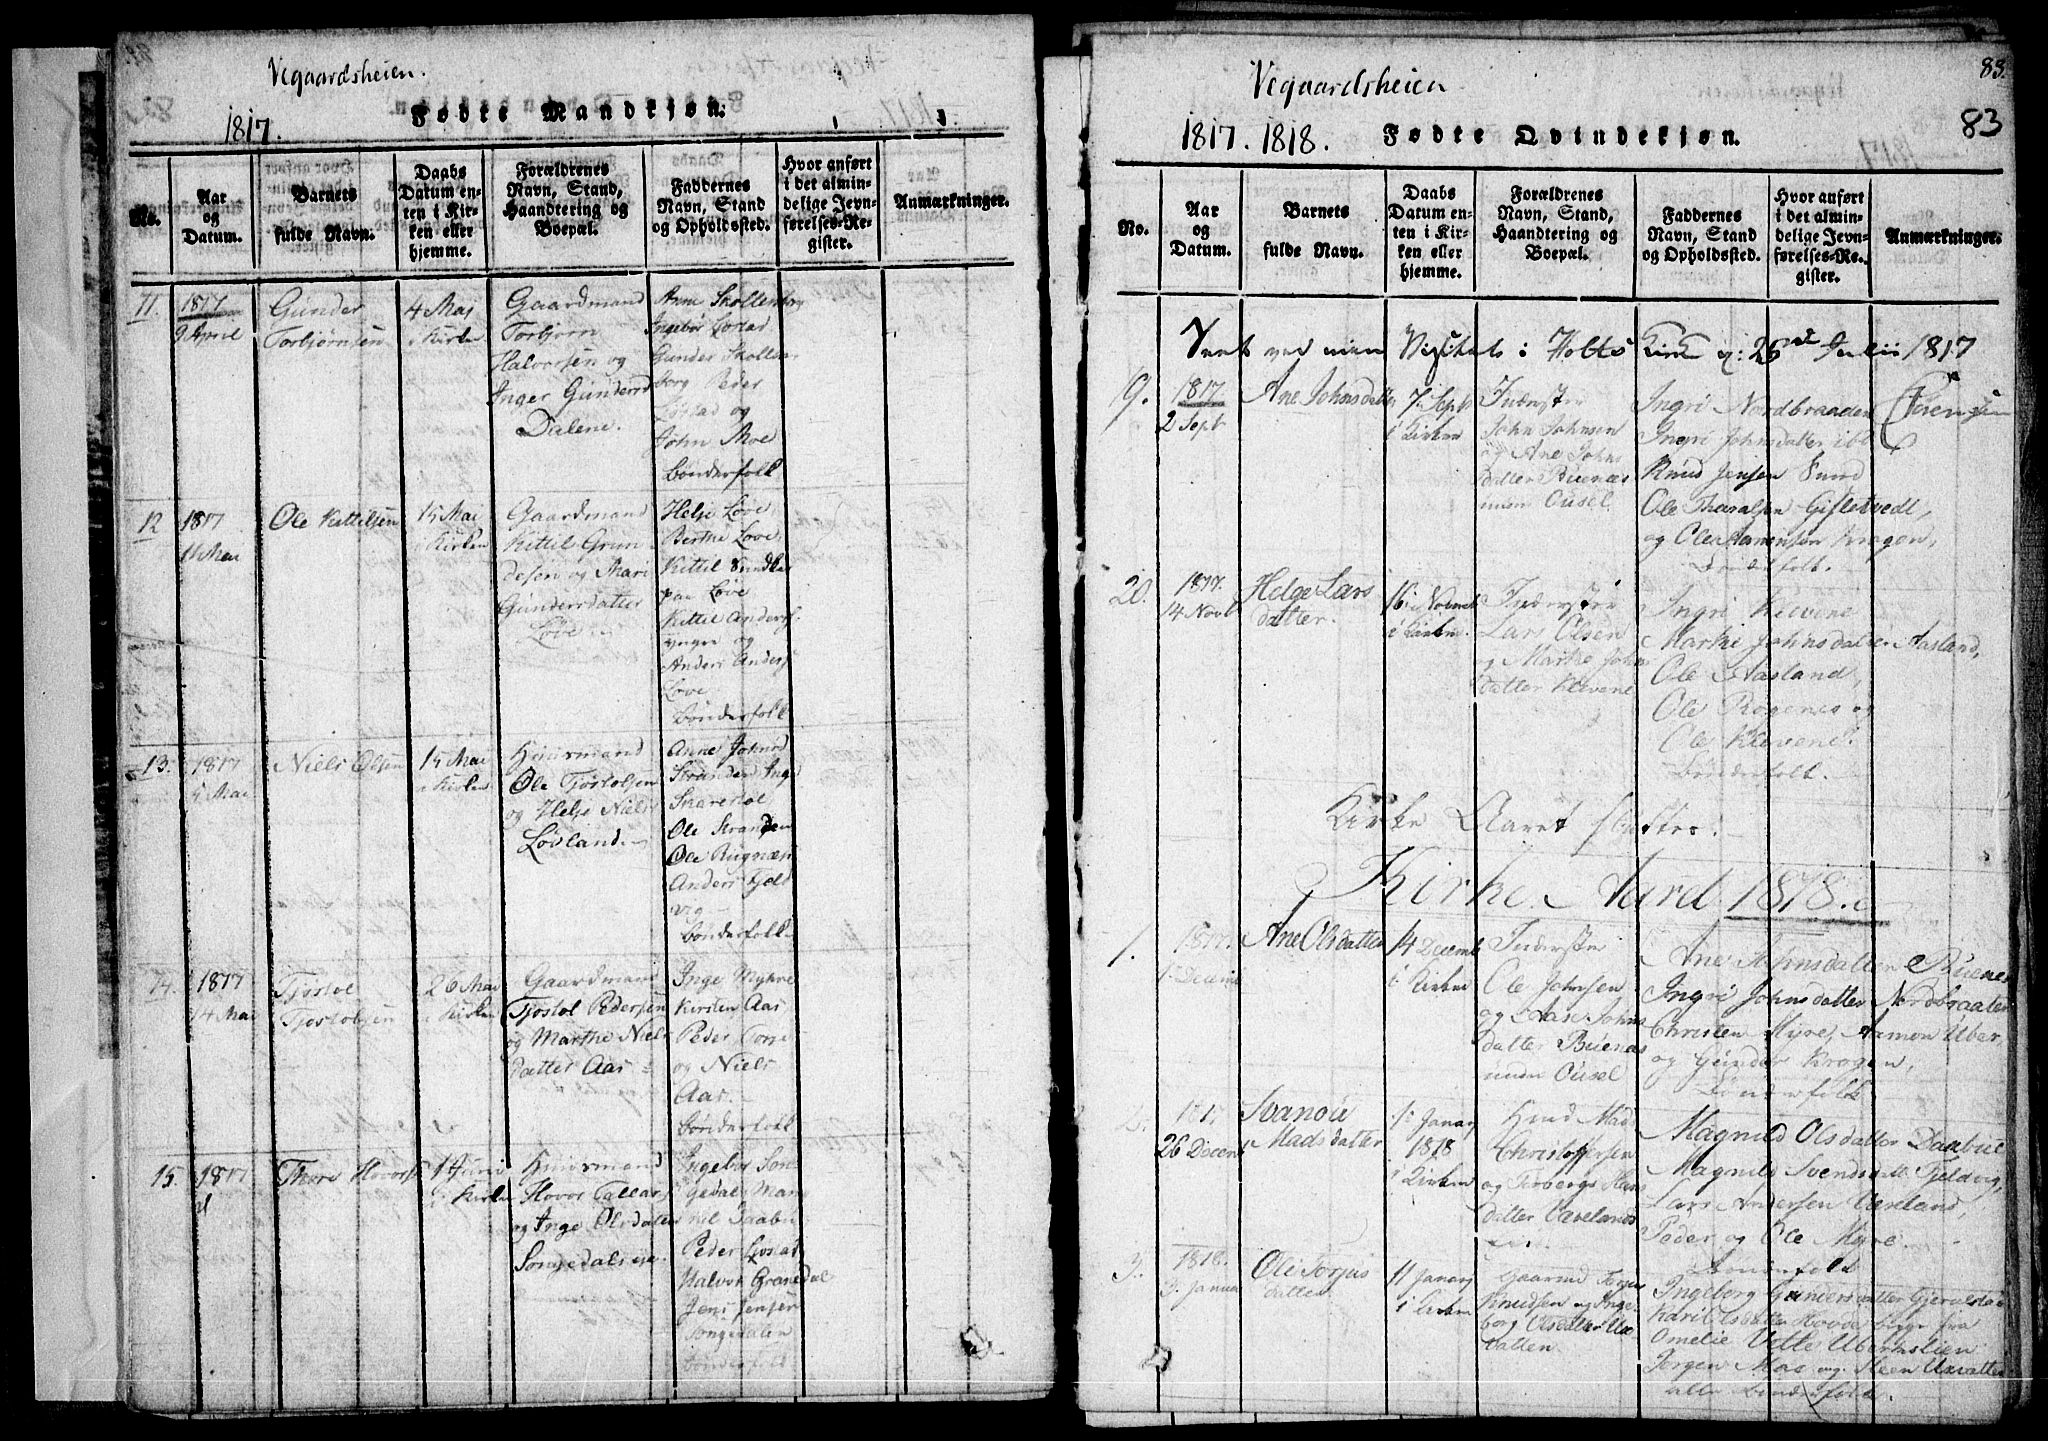 Vegaardsheien.
1817.
Fødte Mandkjøn.
No.
Aar og Datum.
Barnets fulde Navn.
Daabs Datum enten i Kirken eller hjemme.
Forældrenes Navn, Stand, Haandtering og Boepæl.
Faddernes Navn, Stand og Opholdssted.
Hvor anført i det almindelige Jevnførelses-Register.
Anmærkninger.
11.
1817
9 April
Gunder
Torbjørnsen
4 Mai
i Kirken
Gaardmand
Torbjørn
Halvorsen og
Inger Gunders
Dalene.
Anne Skollenborg
Ingebor Løstad
Gunder Skollen
borg Peder
Løstad og
John Moe
Bønderfolk
12
1817
11 Mai
Ole Kittilsen
15 Mai
i Kirken
Gaardmand
Kittil Grun
desen og Mari
Gundersdatter
Løve
Helje Løve
Berthe Løve
Kittil
paa Løve
Kittil Anders.
yngre og
Anders Anders.
Løve
Bønderfolk
13.
1817
5 Mai
Niels Olsen
15 Mai
i Kirken
Huusmand
Ole Tjøstolsen
og Helje Niels
Løvland.
Anne Johnsd
Stranden Inge
Ole Stranden
Ole
Anders Fjeld
vig
Bønderfolk
14.
1817
14 Mai
Tjøstol
Tjostolsen
26 Mai
i Kirken
Gaardmand
Tjøstol Pedersen
og Marthe Niels
datter Aas
Inge Myhre
Kirsten Aas
Peder
og Niels
Aas.
Bønderfolk
15.
1817
Thore Hovors
1 Juni
i Kirken
Huusmand
Hovor Tallacs
og Inge Olsdatter
Songedalseie.
Ingebor Son
gedal, Mang
nil Daabu
Peder Løstad
Halvor Granedal
Jens Jensen
Songedalen
Bønderfolk
Vegaardsheien
83.
83
1817. 1818.
Fødte Qvindekjøn.
No.
Aar og Datum.
Barnets fulde Navn.
Daabs Datum enten i Kirken eller hjemme.
Forældrenes Navn, Stand, Haandtering og Boepæl.
Faddernes Navn, Stand og Opholdssted.
Hvor anført i det almindelige Jevnførelses-Register.
Anmærkninger.
Seet ved min Visitats i Holts Kirke d: 25de Julii 1817
19.
1817
2 Sept
Ane Johnsdatter
7 Sept
i Kirken
Inderster
John Johnsen
og Ane Johns
datter Buenæs
under Ousel.
Ingri Nordbraaden
Ingri Johnsdatter ibl
Knud Jensen Sund
Ole Tharalsen Gifletvedt,
og Ole Aamonsen Krogen,
Bønderfolk.
20.
1817.
14 Novb
Helge Lars
datter.
16 Novmb
i Kirken.
Inderster
Lars Olsen
og Marthe Johns
datter Klevene
Ingri Klevene
Marthe Johnsdatter Aasland,
Ole Aasland,
Ole Rogenes og
Ole Klevene.
Bønderfolk.
Kirke Aaret slutter.
Kirke Aaret 1818.
1.
1817.
1 Decem
Ane Olsdatter
14 Decemb
i Kirken
Inderster
Ole Johnsen
og Aase Johns
datter Buenæs
under Ousel
Ane Johnsdatter Buenes
Ingri Johnsdatter Nordbraaten
Christen Myre, Aamon Uber
og Gunder Krogen,
Bønderfolk
2.
1817
26 Decem
Svanou
Madsdatter
1 Januar
1818
i Kirken
Mads
Christophersen
og
datter
Magnild Olsdatter Daabuel
Magnild Svendsdatt Fjeldvig,
Lars Andersen
Peder og Ole Myre
Bønderfolk
3.
1818.
3 Januar
Ole Torjus
datter
11 Januar
i Kirken
Gaardmd Torjus
Knudsen og Inge
borg Olsdatter Ux
vatten
Ingeborg Gundersdatter
Kari Olsdatter Hovde begge fra
Omelie Vette Ubergslien
Jørgen Moe og Steen Uxvatten
alle Bønderfolk.